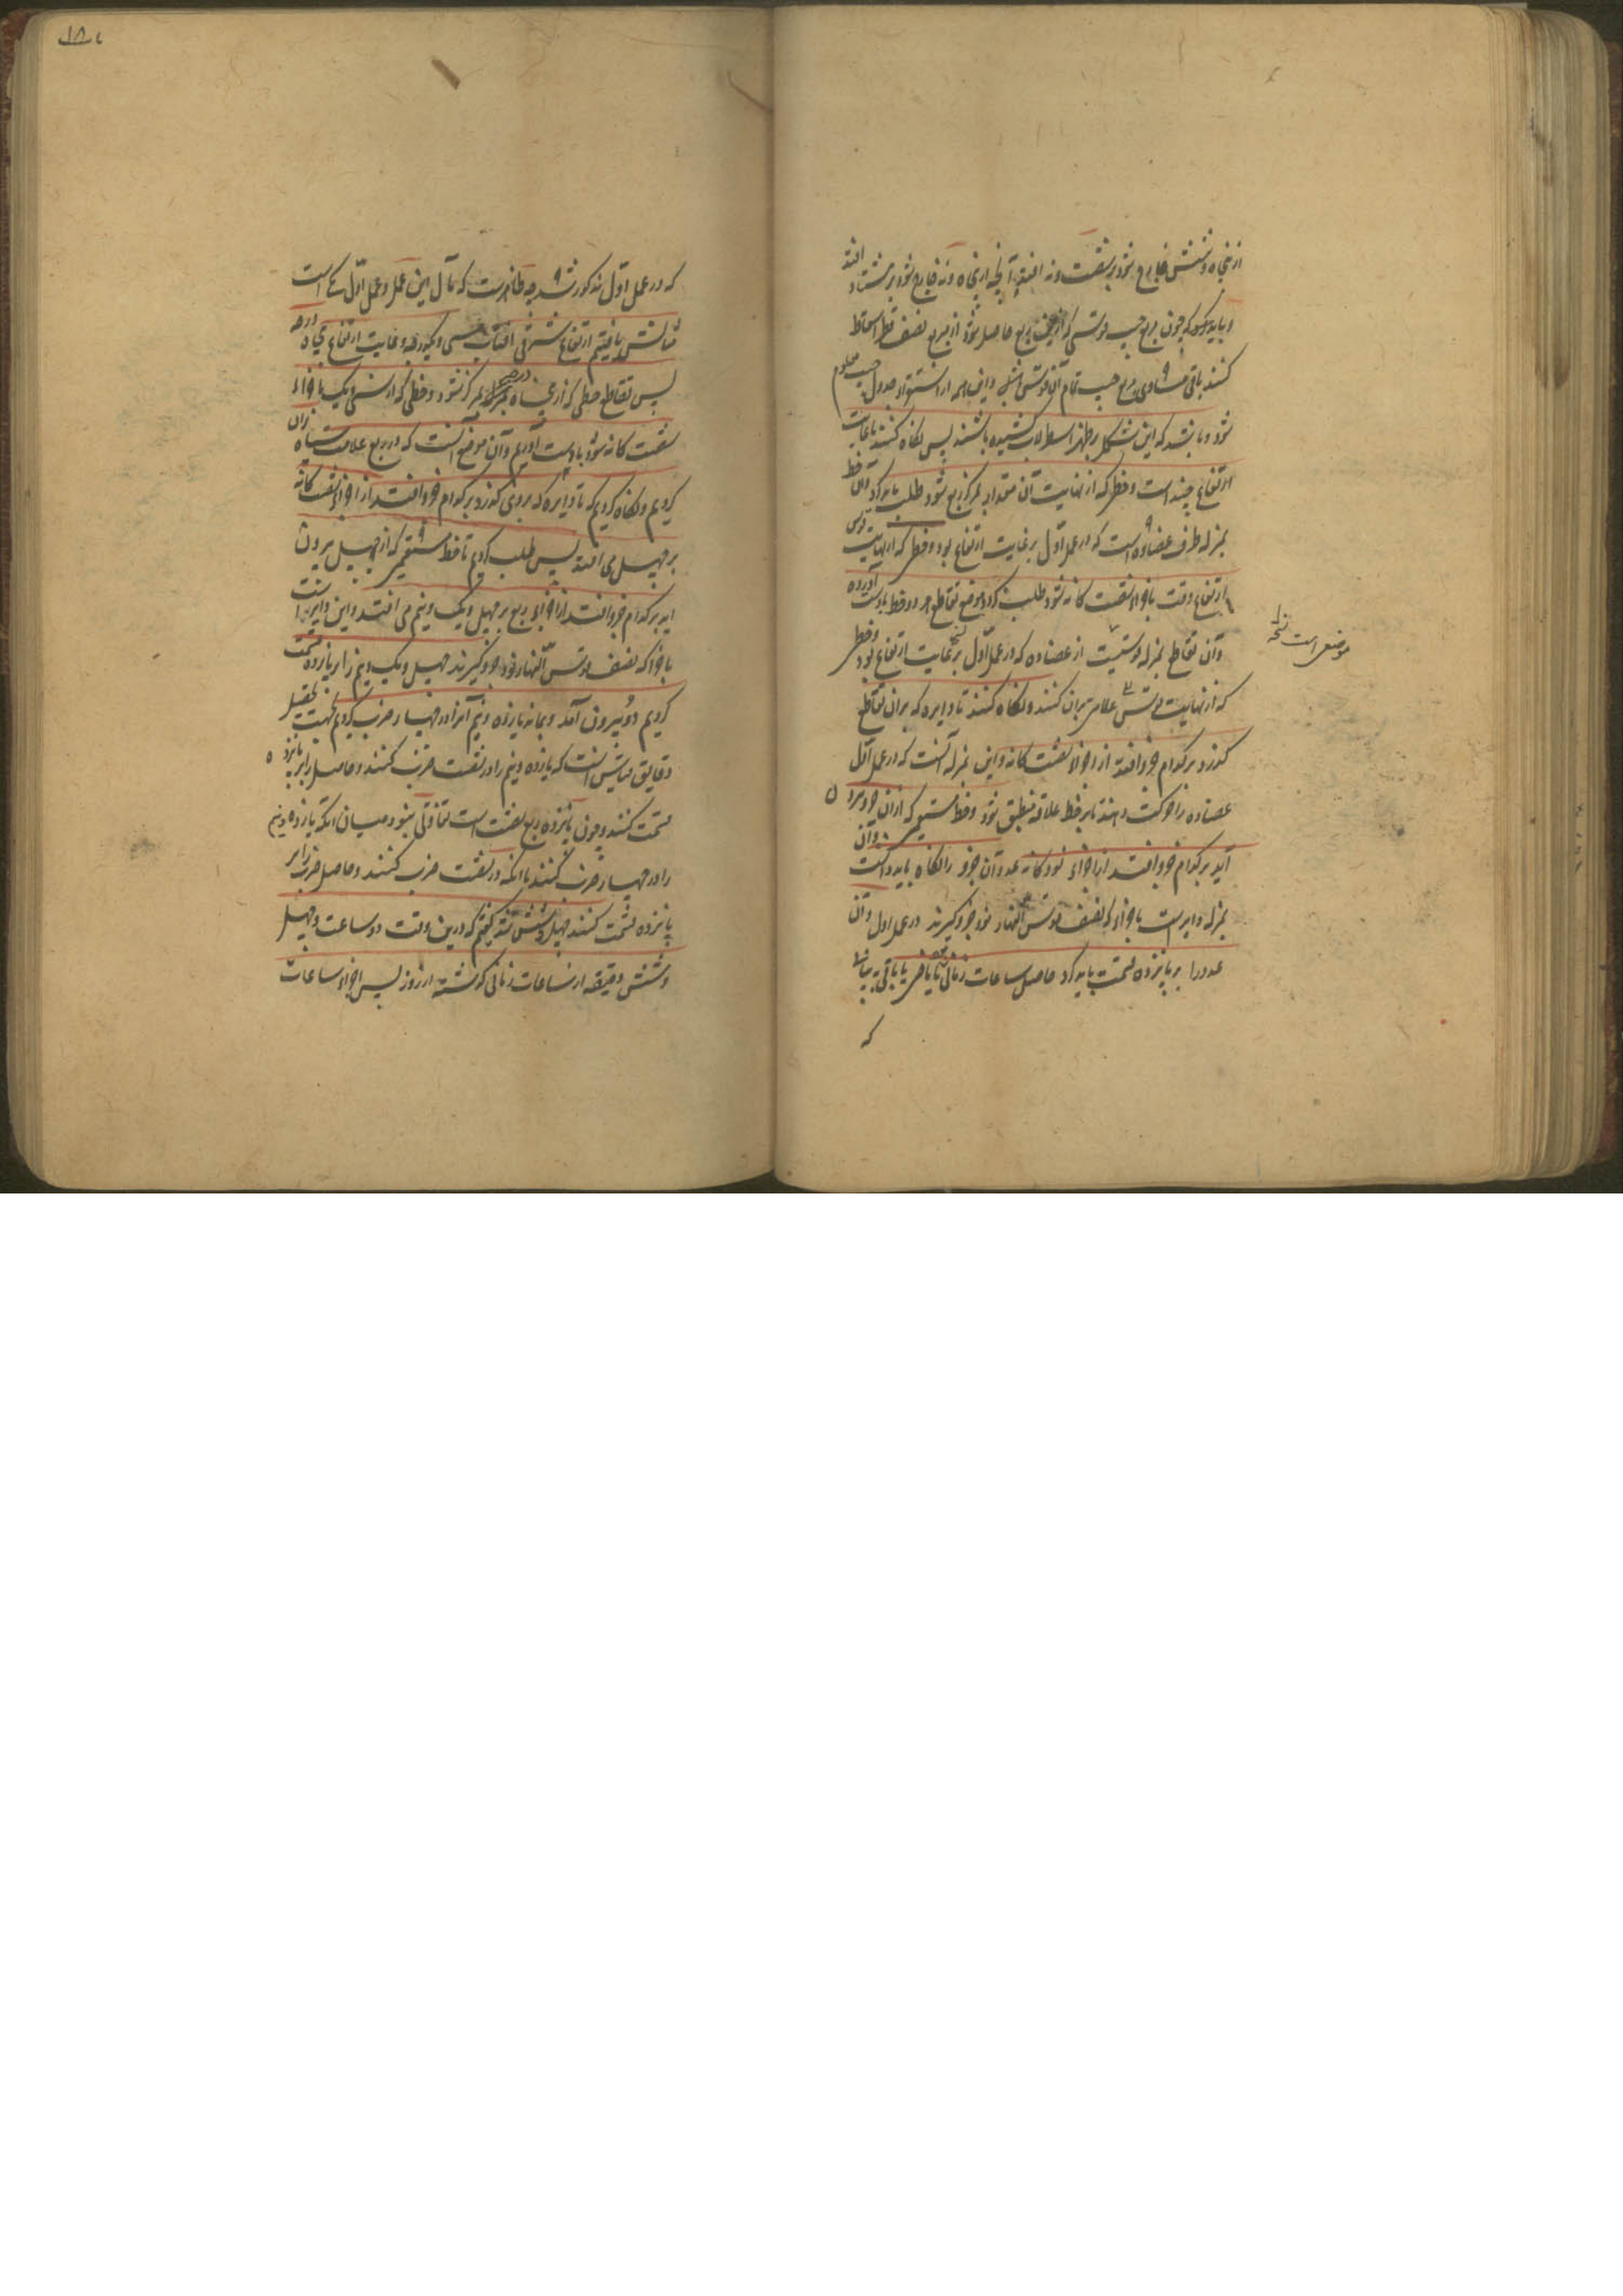 از پنجاه و شش خارج شود بر شصت و نه افتد و آنچه از پنجاه و نه خارج شود بر هشتاد افتد
و بباید دانست که چون مربع جیب قوسی که ازین ربع حاصل شود از مربع نصف قطر اسقاط
کنند باقی مساوی مربع جیب تمام آن قوس باشد و این همه از استقراء جدول جیب معلوم
شود و باشد که این شکل بر ظهر اسطرلاب کشیده باشند پس نگاه کنند تا غایت
ارتفاع چند است و خطی که از نهایت آن مقدار بمرکز ربع شود طلب باید کرد و آن خط
بمنزله طرف عضاده است که در عمل اول بر غایت ارتفاع بود و خطی که از نهایت قوس
ارتفاع وقت باجزاء شصت گانه شود طلب کرد و موضع تقاطع هر دو خط بدست آورده
و آن تقاطع بمنزله قوسیست از عضاده که در عمل اول بر غایت ارتفاع بود و خطی
که از نهایت قوس علامتی بران کنند و نگاه کنند تا دایره که بران تقاطع
گذرد بر کدام جزو افتد از اجزاء شصت گانه و این بمنزله آنست که در عمل اول
عضاده را حرکت دهند تا بر خط علاقه منطبق شود و خط مستقیم که ازان جزو بیرون
آید بر کدام جزو افتد از اجزاء نود گانه عدد آن جزو را نگاه باید داشت و آن
بمنزله دایر است باجزائی که نصف قوس النهار نود جزو گیرند در عمل اول و آن
عدد را بر پانزده قسمت باید کرد حاصل ساعات زمانی ماضی یا باقی
که
موضعی است نسخه
که در عمل اول مذکور شد چه ظاهرست که مآل این عمل و عمل اول یکی است
مثالش یافتیم ارتفاع شرقی آفتاب سی و یکدرجه و غایت ارتفاع پنجاه درجه
پس تقاطع خطی که از پنجاه درجه بمرکز شود و خطی که از سی و یک باجزاء
شصت گانه شود بدست آوردیم و آن موضع است که در ربع علامت سیاه بران
کردیم و نگاه کردیم که تا دایره که بروی گذرد بر کدام جزو افتد از اجزاء شصت گانه
بر چهل می افتد پس طلب کردیم تا خط مستقیم که از چهل بیرون
آید بر کدام جزو افتد از اجزاء ربع بر چهل و یک و نیم می افتد و این دایر است
باجزا که نصف قوس النهار نود جزو گیرند چهل و یک و نیم را بر پانزده قسمت
کردیم دو بیرون آمد و بماند یازده و نیم آنرا در چهار ضرب کردیم بجهت تحصیل
دقایق قیاس آنست که یازده و نیم را در شصت ضرب کنند و حاصل را بر پانزده
قسمت کنند و چون پانزده ربع شصت است تفاوتی نبود میان آنکه یازده و نیم
را در چهار ضرب کنند یا آنکه در شصت ضرب کنند و حاصل ضرب را بر
پانزده قسمت کنند چهل و شش شد گفتیم که درین وقت دو ساعت و چهل
و شش دقیقه از ساعات زمانی گذشته از روز پس اجزاء ساعات